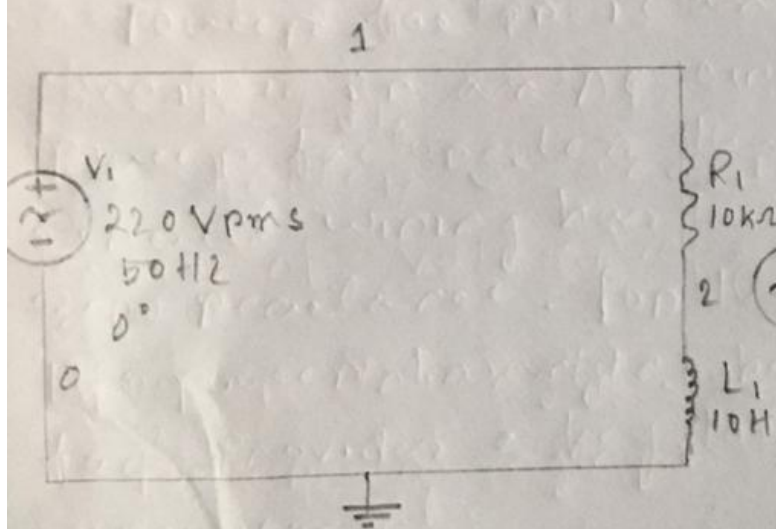 1
V1
+
220 Vpms
50 HZ
0°
0
R1
10kΩ
2
L1
10H